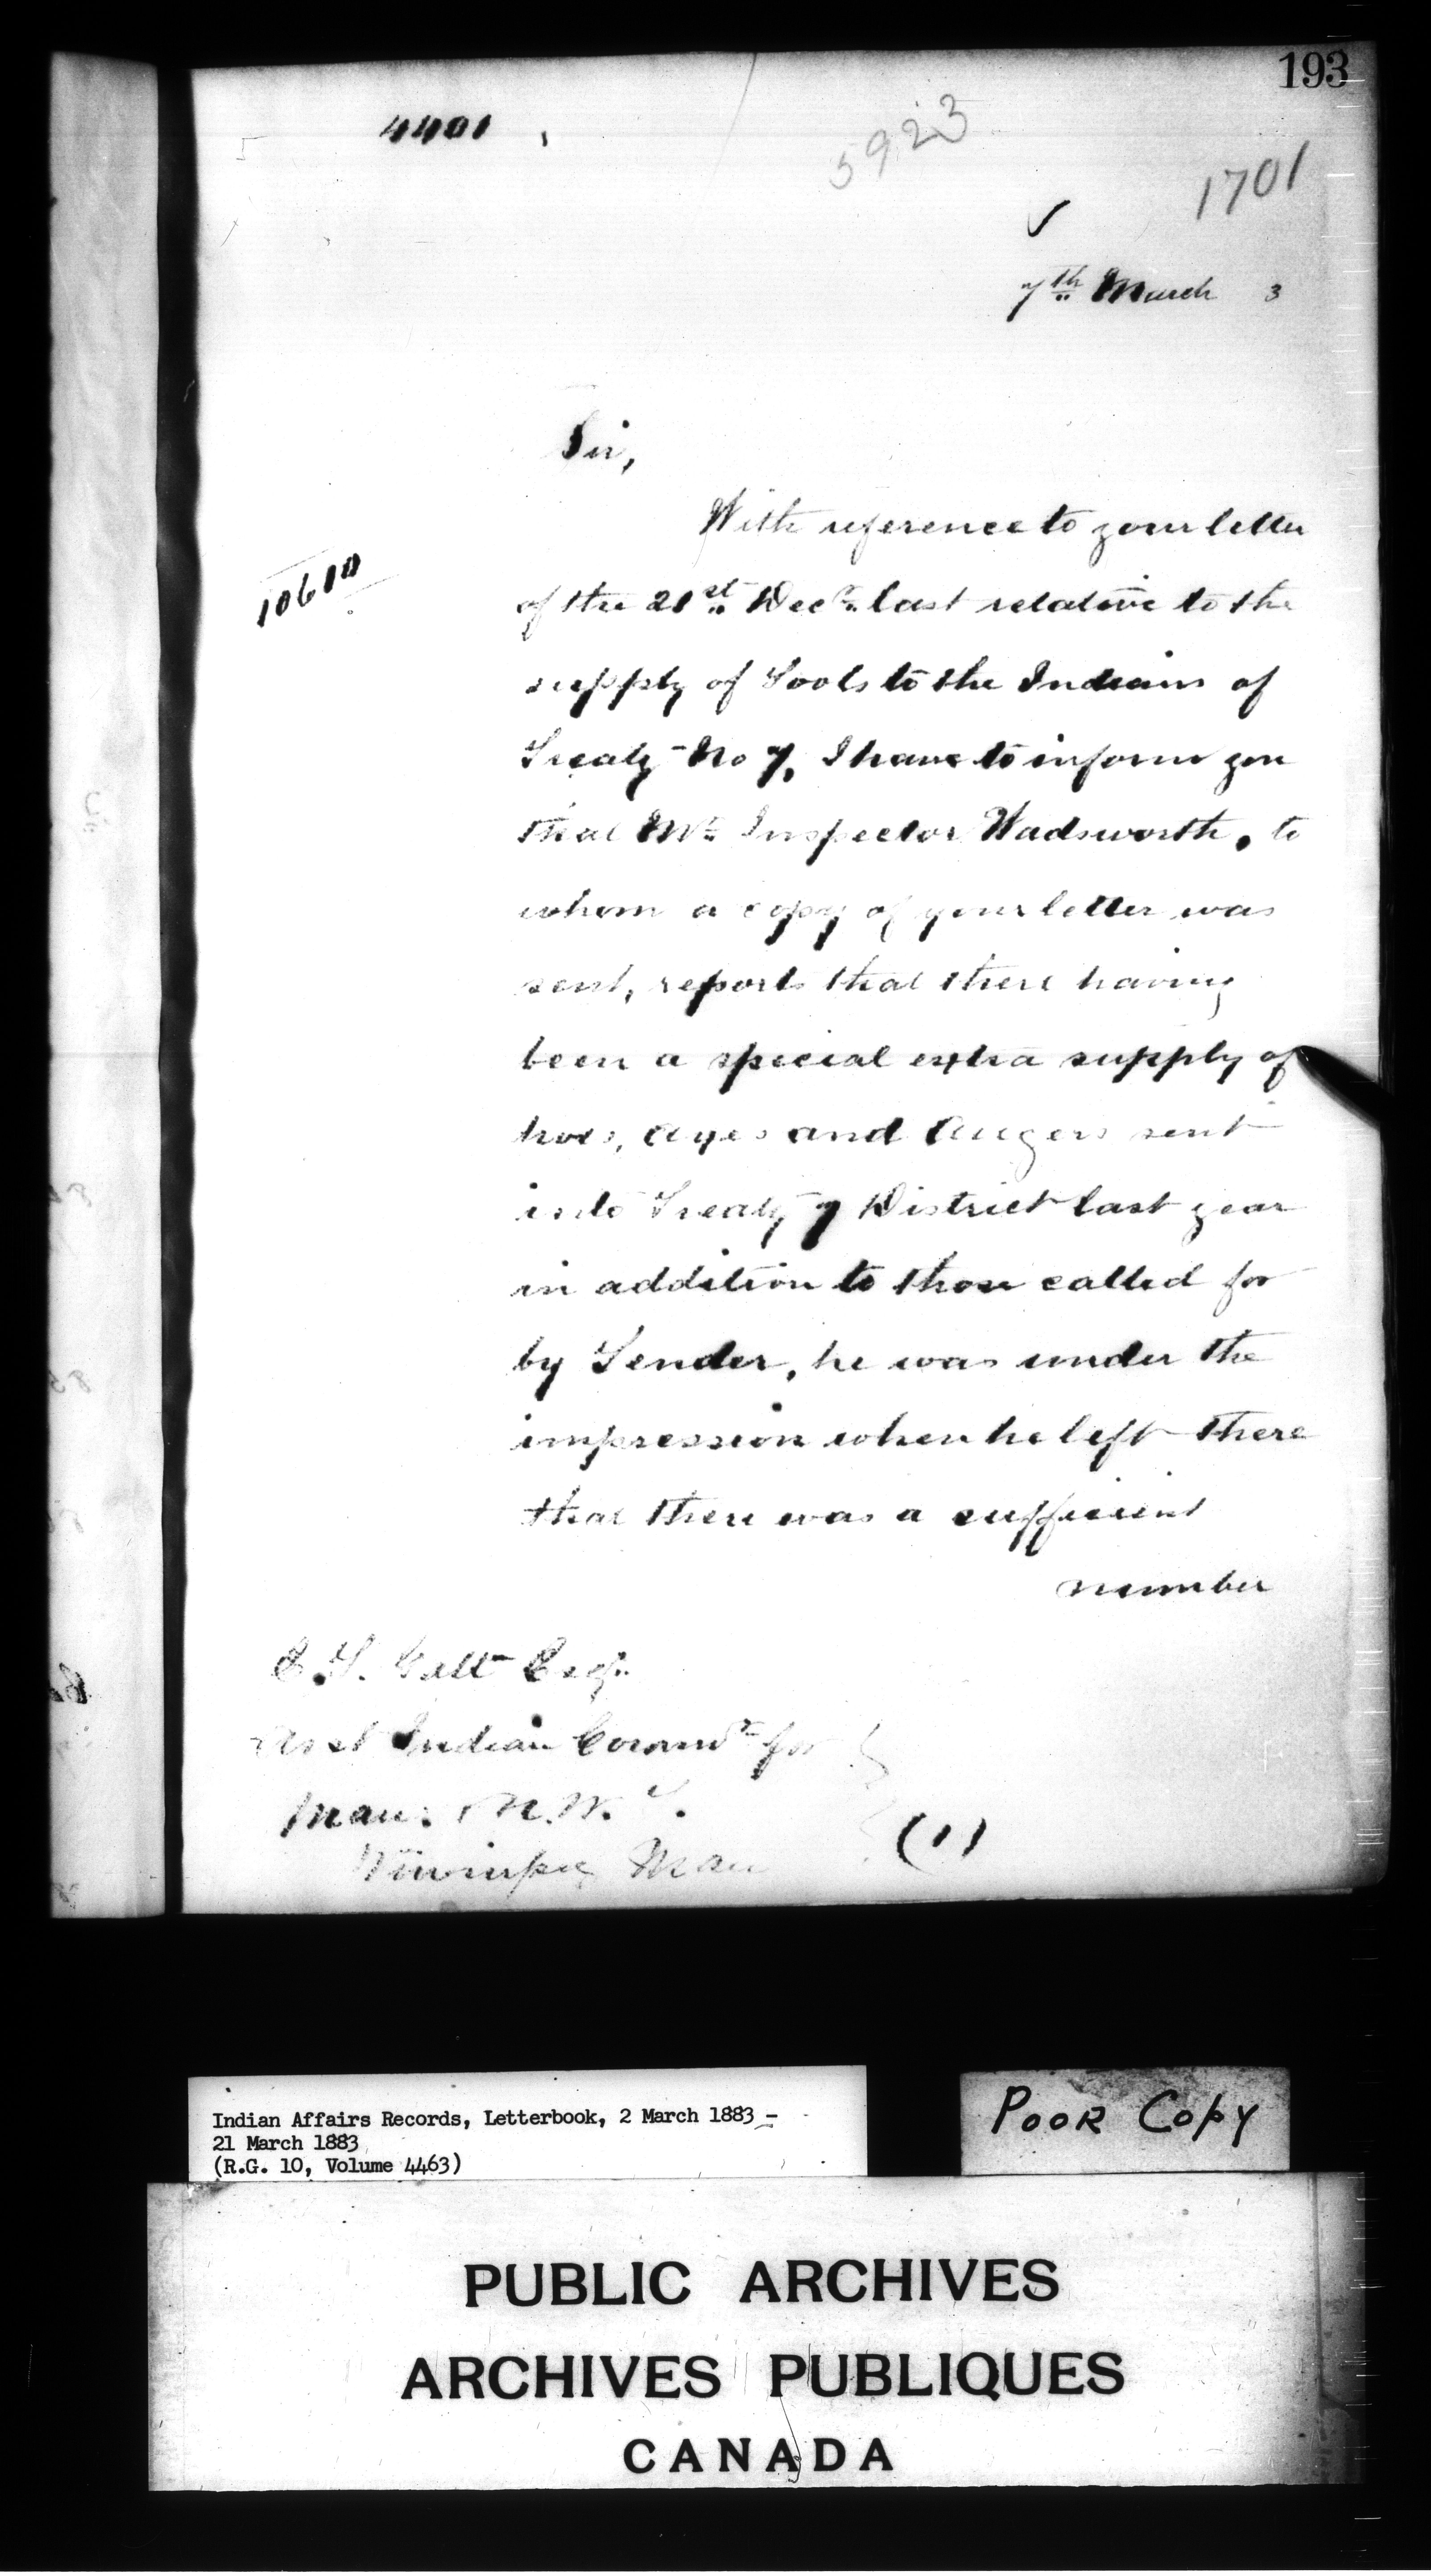 193
4401
5923
1701
7th March 3
Sir,
With reference to your letter
10610
of the 21st Decr. last relative to the
supply of Tools to the Indians of
Treaty No 7, I have to inform you
that Mr. Inspector Wadsworth, to
whom a copy of your letter was
sent, reports that there having
been a special extra supply of
hoes, axes and Augers sent
into Treaty 7 District last year
in addition to those called for
by Tender, he was under the
impression when he left there
that there was a sufficient
number
E.T. Galt Esq.
Asst Indian Commr for
Man. & N.W.T.
Winnipeg Man
(1)
Indian Affairs Records, Letterbook, 2 March 1883 -
21 March 1883
(R.G. 10, Volume 4463)
POOR COPY
PUBLIC ARCHIVES
ARCHIVES PUBLIQUES
CANADA